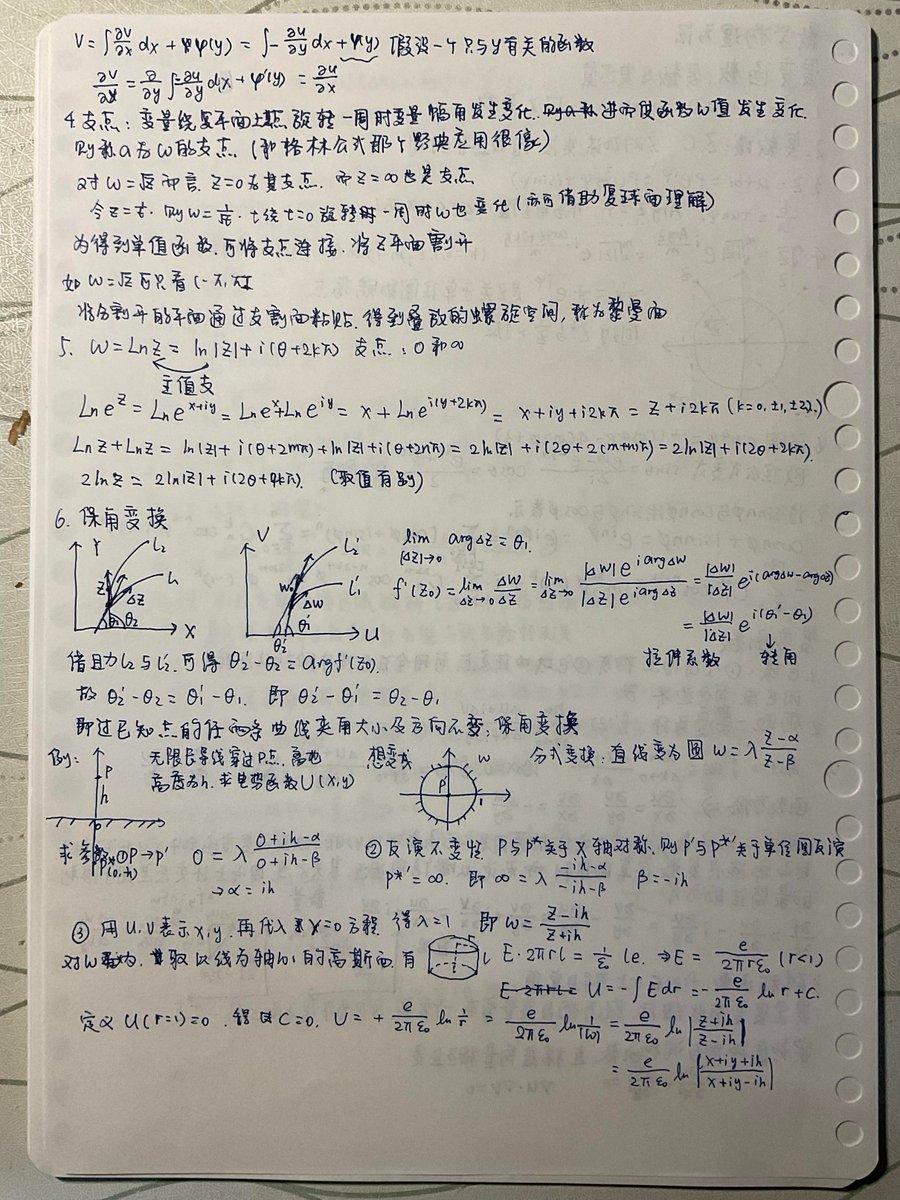 V = ∫∂V/∂x dx + φ(y) = ∫-∂u/∂y dx + φ(y) 假设一个只与y有关的函数
∂V/∂y = ∂/∂y ∫-∂u/∂y dx + φ'(y) = ∂u/∂x
4. 支点：变量绕复平面上点旋转一周时变量幅角发生变化，进而使函数W值发生变化
则称a为W的支点（和格林公式那个经典应用很像）
对W=√z而言，Z=0为其支点，而Z=∞也是支点
令Z=1/t，则W=1/√t，t绕t=0旋转一周时W也变化（亦可借助复球面理解）
为得到单值函数，可将支点连接，将Z平面割开
如W=√z可只看(-π,π]
将分割开的平面通过支割面粘贴，得到叠放的螺旋空间，称为黎曼面
5. W=Lnz = ln|z| + i(θ+2kπ) 支点：0和∞
主值支
Ln e^z = Ln e^(x+iy) = Ln e^x + Ln e^(iy) = x + Ln e^(i(y+2kπ)) = x+iy+i2kπ = z+i2kπ (k=0,±1,±2..)
Lnz+Lnz = ln|z|+i(θ+2mπ)+ln|z|+i(θ+2nπ) = 2ln|z|+i(2θ+2(m+n)π) = 2ln|z|+i(2θ+2kπ).
2lnz = 2ln|z|+i(2θ+4kπ). （取值有别）
6. 保角变换
Y L₂ L₁ Z₀ ΔZ θ₁ θ₂ X
V L₂' L₁' W₀ ΔW θ₁' θ₂' U
lim |Δz|→0 argΔz = θ₁
f'(z₀) = lim Δz→0 Δw/Δz = lim Δz→0 |Δw|e^(i argΔw)/|Δz|e^(i argΔz) = |Δw|/|Δz| e^(i(argΔw-argΔz))
= |Δw|/|Δz| e^(i(θ₁'-θ₁))
拉伸系数 转角
借助L₂与L₂'，可得θ₂'-θ₂ = argf'(z₀).
故 θ₂'-θ₂ = θ₁'-θ₁ 即 θ₂'-θ₁' = θ₂-θ₁
即过已知点的任两条曲线夹角大小及方向不变，保角变换
例：
P
h
无限长导线穿过P点，离地
高度为h，求电势函数U(x,y)
想变成
P' W 1
分式变换：直线变为圆 W = λ (z-α)/(z-β)
P*(0,-h)
求参数 ①P→P' 0 = λ (0+ih-α)/(0+ih-β)
→α=ih
②反演不变性 P与P*关于X轴对称，则P'与P*'关于单位圆反演
P*'=∞. 即 ∞ = λ (-ih-α)/(-ih-β) β=-ih
③用U,V表示x,y，再代入y=0方程，得λ=1 即W = (z-ih)/(z+ih)
对W面内，取以线为轴的高斯面，有 r l E·2πrl = 1/ε₀ le. ⇒E = e/(2πrε₀) (r<1)
E·2πrl= U=-∫Edr = -e/(2πε₀) ln r + C.
定义U(r=1)=0，得出C=0，U = + e/(2πε₀) ln 1/r = e/(2πε₀) ln 1/|w| = e/(2πε₀) ln |(z+ih)/(z-ih)|
= e/(2πε₀) ln |(x+iy+ih)/(x+iy-ih)|